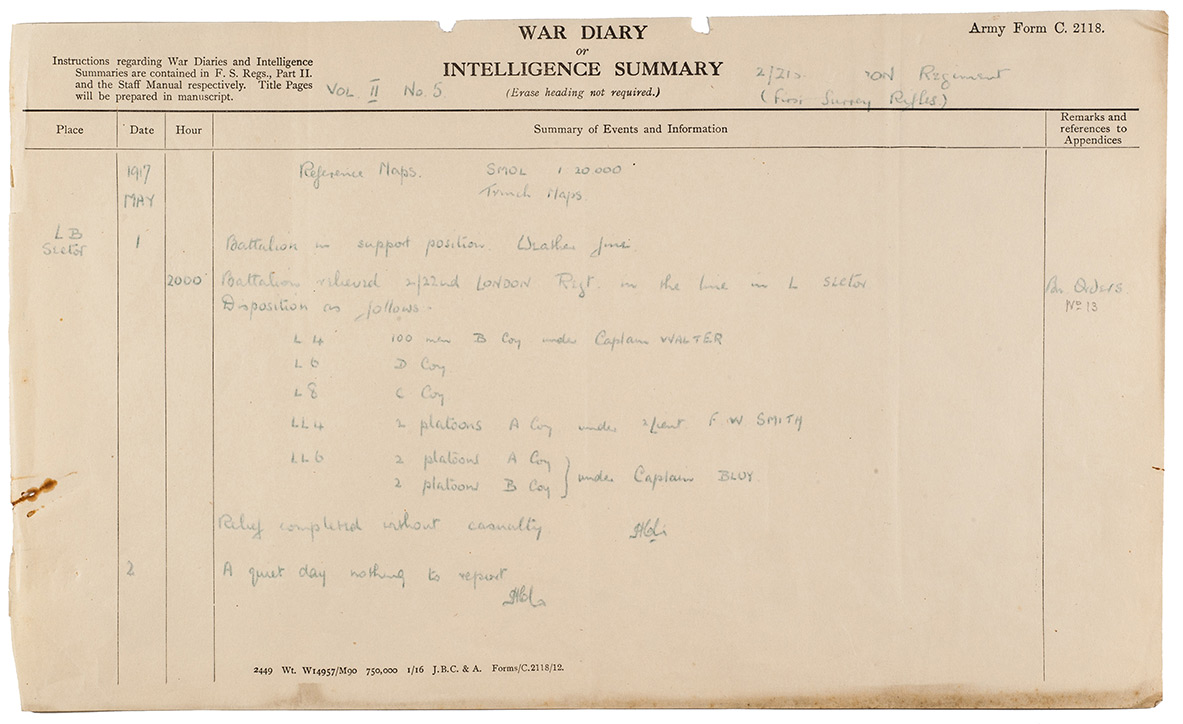 WAR DIARY
or
INTELLIGENCE SUMMARY
(Erase heading not required.)
Army Form C. 2118.
Instructions regarding War Diaries and Intelligence
Summaries are contained in F. S. Regs., Part II.
and the Staff Manual respectively. Title Pages
will be prepared in manuscript.
VOL. II No. 5
2/21s ON Regiment
(First Surrey Rifles)
Place Date Hour Summary of Events and Information Remarks and references to Appendices
1917 Reference Maps. SMOL 1 20.000
MAY Trench Maps
L B
Sector
1 Battalion in support position. Weather fine.
2000 Battalion relieved 2/22nd LONDON Regt. in the line in L sector
Disposition as follows-
Orders
No 13
L 4 100 men B Coy under Captain WALTER
L 6 D Coy
L 8 C Coy
LL4 2 platoons A Coy under 2/Lieut F W SMITH
LL6 2 platoons A Coy
2 platoons B Coy } under Captain BLUY
Relief completed without casualty
2 A quiet day nothing to report
2449 Wt. W14957/M90 750,000 1/16 J.B.C. & A. Forms/C.2118/12.